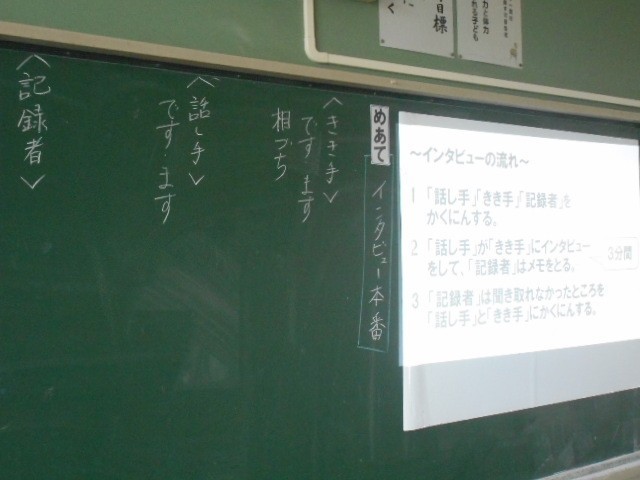 めあて
インタビュー本番
〈きき手〉
です・ます
相づち
〈話し手〉
です・ます
〈記録者〉
～インタビューの流れ～
1 「話し手」「きき手」「記録者」を
かくにんする。
2 「話し手」が「きき手」にインタビュー
をして、「記録者」はメモをとる。
3分間
3 「記録者」は聞き取れなかったところを
「話し手」と「きき手」にかくにんする。
目標